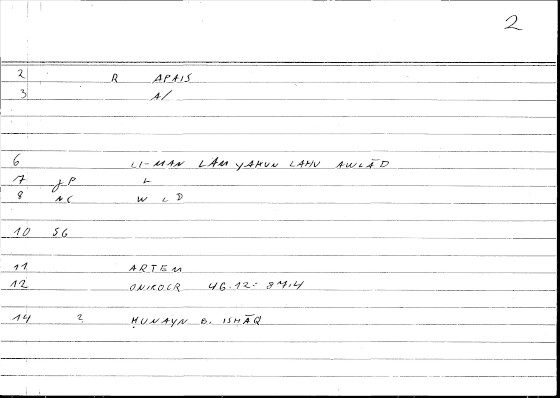 2
2 R APAIS
3 A/
6 LI-MAN LAM YAKUN LAHU AWLĀD
7 JP L
8 NC W L D
10 SG
11 ARTEM
12 ONIROCR 46.12: 87.4
14 2 ḤUNAYN B. ISḤĀQ